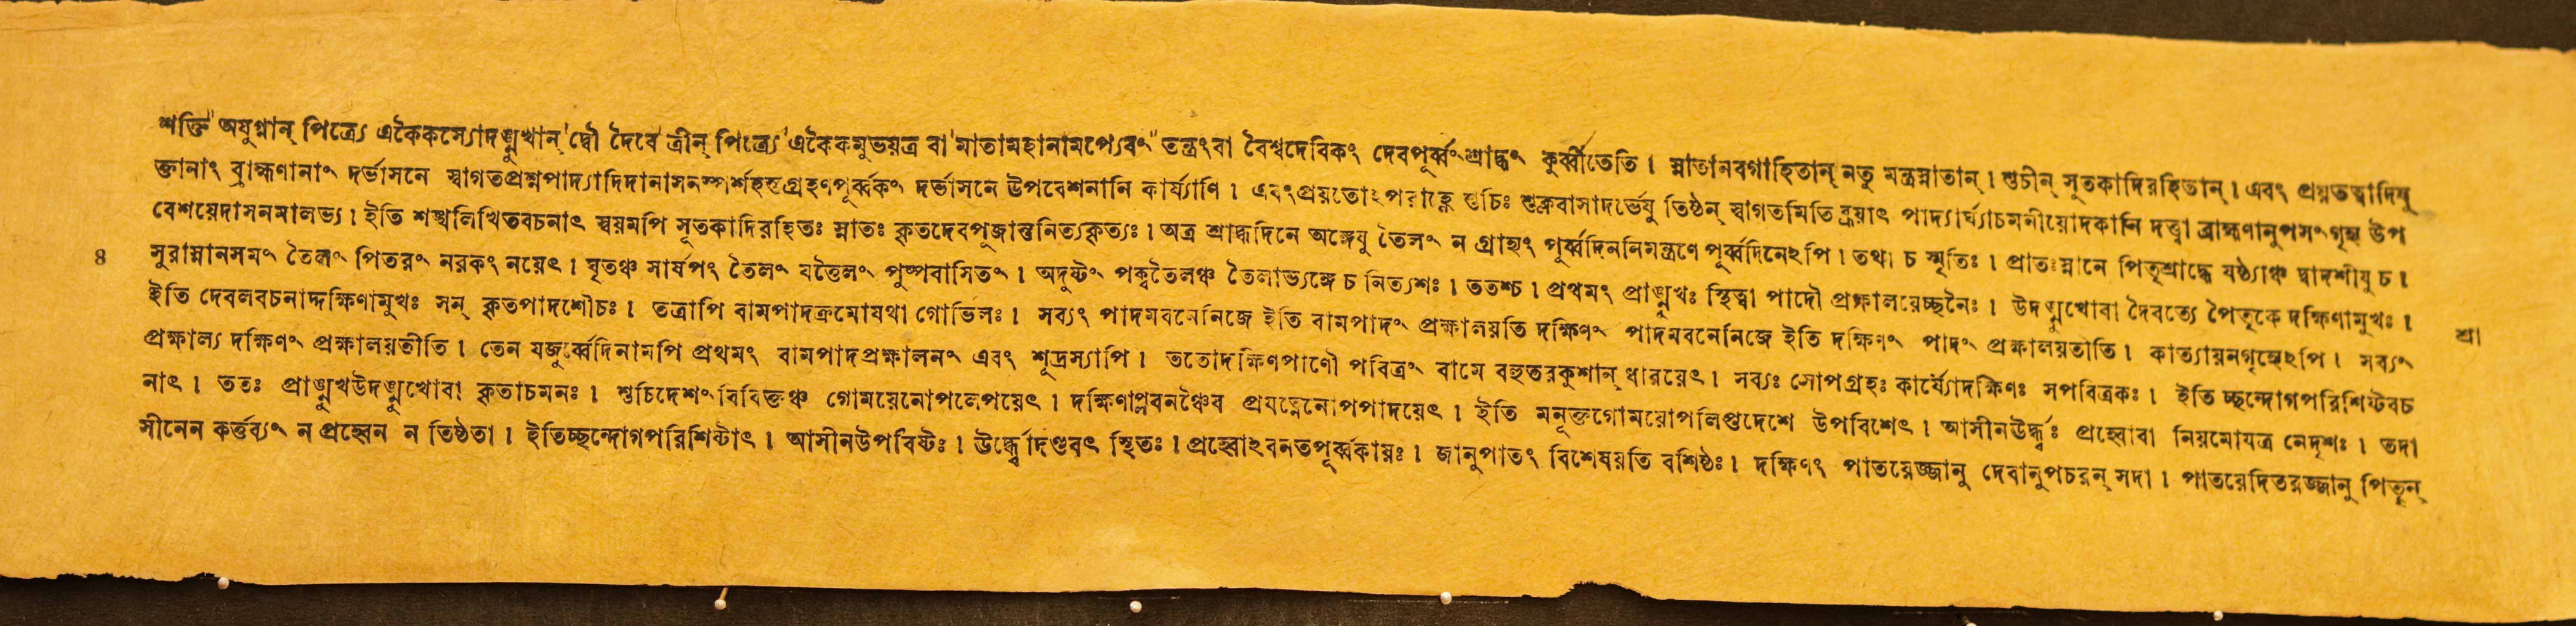 শক্তি" অযুগ্নান্ পিত্র্যে একৈকস্যোদঙ্মুখান্' দ্বৌ দৈবে ত্রীন্ পিত্র্যে' একৈকমুভয়ত্র বা' মাতামহানামপ্যেবং" তন্ত্রংবা বৈশ্বদেবিকং দেবপূর্ব্বং শ্রাদ্ধং কুর্ব্বীতেতি । স্নাতানবগাহিতান্ নতু মন্ত্রস্নাতান্ । শুচীন্ সূতকাদিরহিতান্ । এবং প্রয়তত্বাদিযু
ক্তানাং ব্রাহ্মণানাং দর্ভাসনে স্বাগতপ্রশ্নপাদ্যাদিদানাসনস্পর্শহস্তগ্রহণপূর্ব্বকং দর্ভাসনে উপবেশনানি কার্য্যাণি । এবংপ্রয়তোঽপরাহ্ণে শুচিঃ শুক্লবাসাদর্ভেষু তিষ্ঠন্ স্বাগতমিতি ব্রূয়াৎ পাদ্যার্ঘ্যাচমনীয়োদকানি দত্ত্বা ব্রাহ্মণানুপসংগৃহ্য উপ
বেশয়েদাসনমালভ্য । ইতি শঙ্খলিখিতবচনাৎ স্বয়মপি সূতকাদিরহিতঃ স্নাতঃ কৃতদেবপূজান্তনিত্যকৃত্যঃ । অত্র শ্রাদ্ধদিনে অঙ্গেষু তৈলং ন গ্রাহ্যং পূর্ব্বদিননিমন্ত্রণে পূর্ব্বদিনেঽপি । তথা চ স্মৃতিঃ । প্রাতঃস্নানে পিতৃশ্রাদ্ধে ষষ্ঠ্যাঞ্চ দ্বাদশীষু চ ।
৪ সুরাস্নানসমং তৈলং পিতরং নরকং নয়েৎ । ঘৃতঞ্চ সার্ষপং তৈলং যত্তৈলং পুষ্পবাসিতং । অদুষ্টং পক্বতৈলঞ্চ তৈলাভ্যঙ্গে চ নিত্যশঃ । ততশ্চ । প্রথমং প্রাঙ্মুখঃ স্থিত্বা পাদৌ প্রক্ষালয়েচ্ছনৈঃ । উদঙ্মুখোবা দৈবত্যে পৈতৃকে দক্ষিণামুখঃ । শ্রা
ইতি দেবলবচনাদ্দক্ষিণামুখঃ সন্ কৃতপাদশৌচঃ । তত্রাপি বামপাদক্রমোযথা গোভিলঃ । সব্যং পাদমবনেনিজে ইতি বামপাদং প্রক্ষালয়তি দক্ষিণং পাদমবনেনিজে ইতি দক্ষিণং পাদং প্রক্ষালয়তীতি । কাত্যায়নগৃহ্যেঽপি । সব্যং
প্রক্ষাল্য দক্ষিণং প্রক্ষালয়তীতি । তেন যজুর্ব্বেদিনামপি প্রথমং বামপাদপ্রক্ষালনং এবং শূদ্রস্যাপি । ততোদক্ষিণপাণৌ পবিত্রং বামে বহুতরকুশান্ ধারয়েৎ । সব্যঃ সোপগ্রহঃ কার্য্যোদক্ষিণঃ সপবিত্রকঃ । ইতি চ্ছন্দোগপরিশিষ্টবচ
নাৎ । ততঃ প্রাঙ্মুখউদঙ্মুখোবা কৃতাচমনঃ । শুচিদেশং বিবিক্তঞ্চ গোময়েনোপলেপয়েৎ । দক্ষিণাপ্লবনঞ্চৈব প্রযত্নেনোপপাদয়েৎ । ইতি মনূক্তগোময়োপলিপ্তদেশে উপবিশেৎ । আসীনঊর্দ্ধ্বঃ প্রহ্বোবা নিয়মোযত্র নেদৃশঃ । তদা
সীনেন কর্ত্তব্যং ন প্রহ্বেন ন তিষ্ঠতা । ইতিচ্ছন্দোগপরিশিষ্টাৎ । আসীনউপবিষ্টঃ । ঊর্দ্ধ্বোদণ্ডবৎ স্থিতঃ । প্রহ্বোঽবনতপূর্ব্বকায়ঃ । জানুপাতং বিশেষয়তি বশিষ্ঠঃ । দক্ষিণং পাতয়েজ্জানু দেবানুপচরন্ সদা । পাতয়েদিতরজ্জানু পিতৄন্